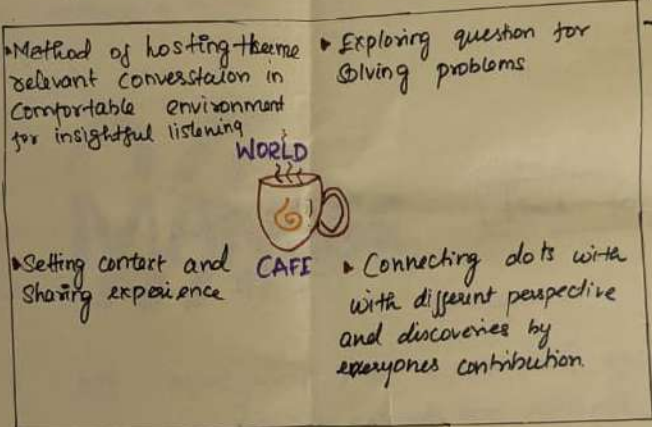 ▸Method of hosting theme
relevant converstaion in
Comfortable environment
for insightful listening
▸ Exploring question for
Solving problems
WORLD
CAFE
▸Setting context and
Sharing experience
▸ Connecting dots with
with different perspective
and discoveries by
everyones contribution.